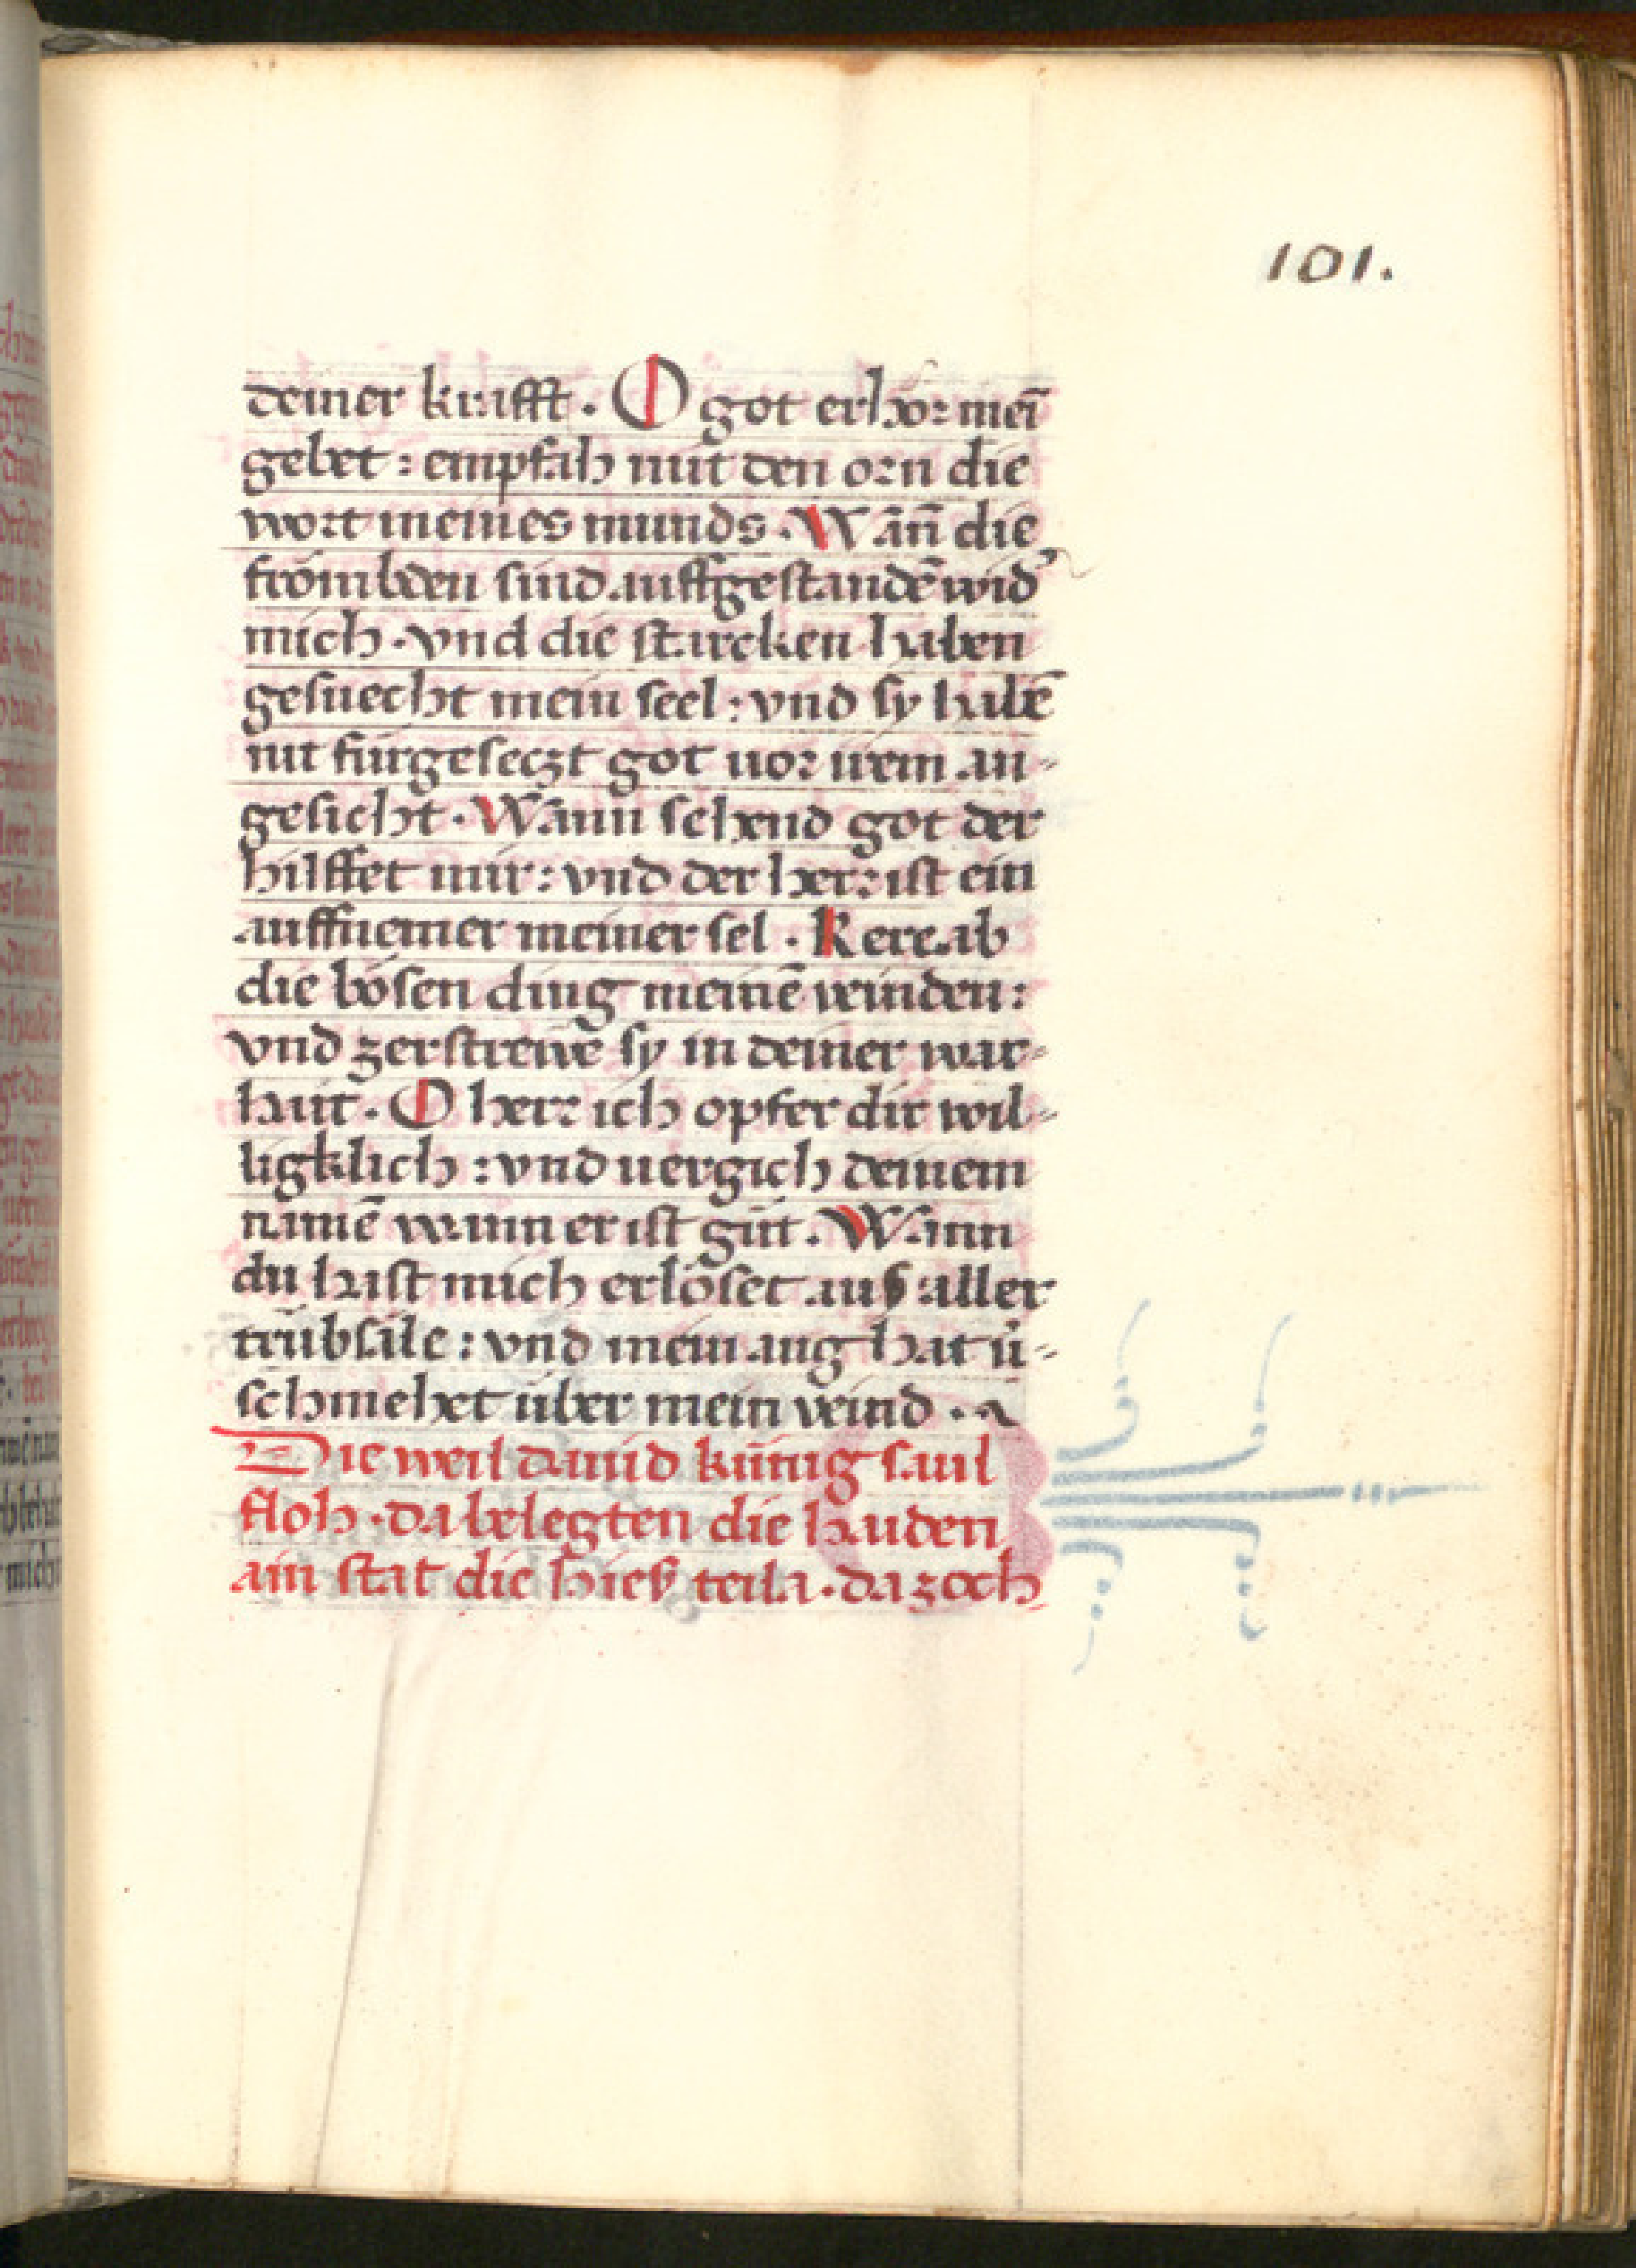 101.
deiner krafft. O got erhör mei̅
gebet: empfah mit den orn die
wort meines munds. Wan̅ die
frömbden sind auffgestande̅ wid'
mich. vnd die starcken haben
gesuecht mein seel: vnd sy habe̅
nit fürgeseczt got uor irem an-
gesicht. Wann sehend got der
hilffet mir: vnd der herr ist ein
auffnemer meiner sel. Kere ab
die bösen ding meine̅ veinden:
vnd zerstrewe sy in deiner war-
hait. O herr ich opfer dir wil-
ligklich: vnd uergich deinem
name̅ wann er ist gůt. Wann
du hast mich erlöset aus aller
trübsale: vnd mein aug hat ü-
schmehet über mein veind.
Die weil dauid künig saul
floh. da belegten die haiden
ain stat die hieß ceila. da zoch